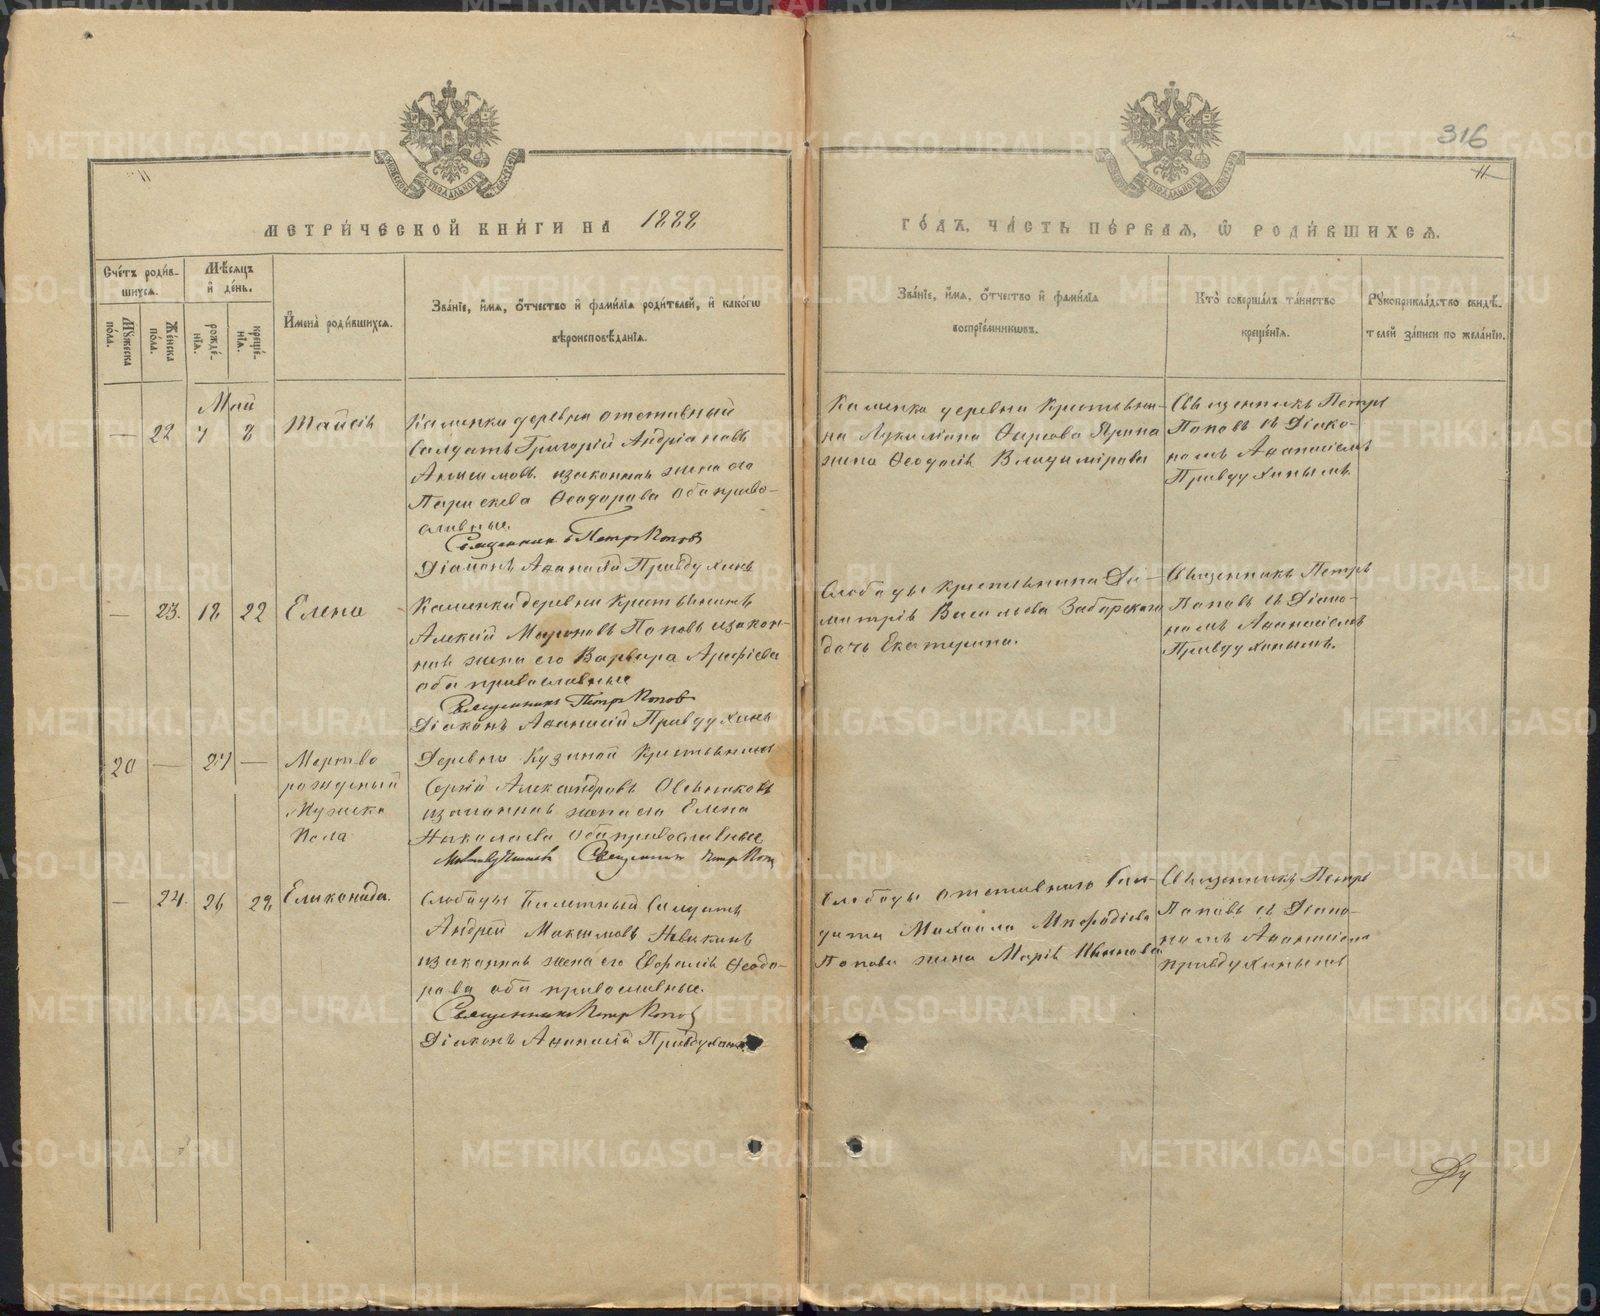 316
11
11
МЕТРИ́ЧЕСКОЙ КНИ́ГИ НА 1888
ГО́ДЪ, ЧА́СТЬ ПЕ́РВАЯ, Ѡ РОДИ́ВШИХСЯ.
Сче́тъ роди́в-
шихся.
Му́жеска по́ла.
Же́нска по́ла.
Мѣ́сяцъ
и де́нь.
рожде́-
нія.
креще́-
нія.
Имена̀ роди́вшихся.
Зва́ніе, и́мя, о́тчество и фами́лія роди́телей, и како́гѡ
вѣроисповѣ́данія.
Зва́ніе, и́мя, о́тчество и фами́лія
воспріе́мникѡвъ.
Кто̀ соверша́лъ та́инство
креще́нія.
Рꙋкоприкла́дство свидѣ́-
телей за́писи по жела́нію.
Май
— 22 7 8
Таисія
Каменки деревни отставный
Солдатъ Григорій Андріановъ
Анисимовъ изаконная жена его
Параскева Ѳеодорова оба право-
славные.
Священникъ Петръ Поповъ
Діаконъ Аѳанасій Правдухинъ
Каменки деревни Крестьяни-
на
жена Ѳеодосія Владимірова
Священникъ Петръ
Поповъ съ Діако-
номъ Аѳанасіемъ
Правдухинымъ.
— 23. 18 22
Елена
Каменки деревни Крестьянинъ
Алексій Мароновъ Поповъ изакон-
ная жена его Варвара Арефіева
оба православные
Священникъ Петръ Поповъ
Діаконъ Аѳанасій Правдухинъ
Слободы Крестьянина Ди-
митрія Васильева Забарскаго
дочь Екатерина.
Священникъ Петръ
Поповъ съ Діако-
номъ Аѳанасіемъ
Правдухинымъ.
20 — 27 —
Мертво
рожденный
Мужска
Пола
Деревни Кузиной Крестьянинъ
Сергій Александровъ Овсянниковъ
изаконная жена его Елена
Николаева оба православные
Священникъ Петръ Поповъ
— 24. 26 28
Еликонида.
Слободы Билетный Солдатъ
Андрей Максимовъ Невикинъ
изаконная жена его Евѳалія Ѳеодо-
рова оба православные.
Священникъ Петръ Поповъ
Діаконъ Аѳанасій Правдухинъ
Слободы отставного Сол-
дата Михаила Меѳодіева
Попова жена Марія Иванова
Священникъ Петръ
Поповъ съ Діако-
номъ Аѳанасіемъ
Правдухинымъ
METRIKI.GASO-URAL.RU